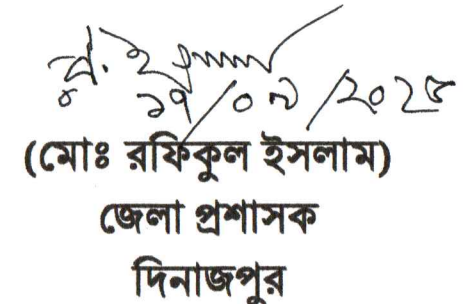 ১৭/০৭/২০২৫
(মোঃ রফিকুল ইসলাম)
জেলা প্রশাসক
দিনাজপুর